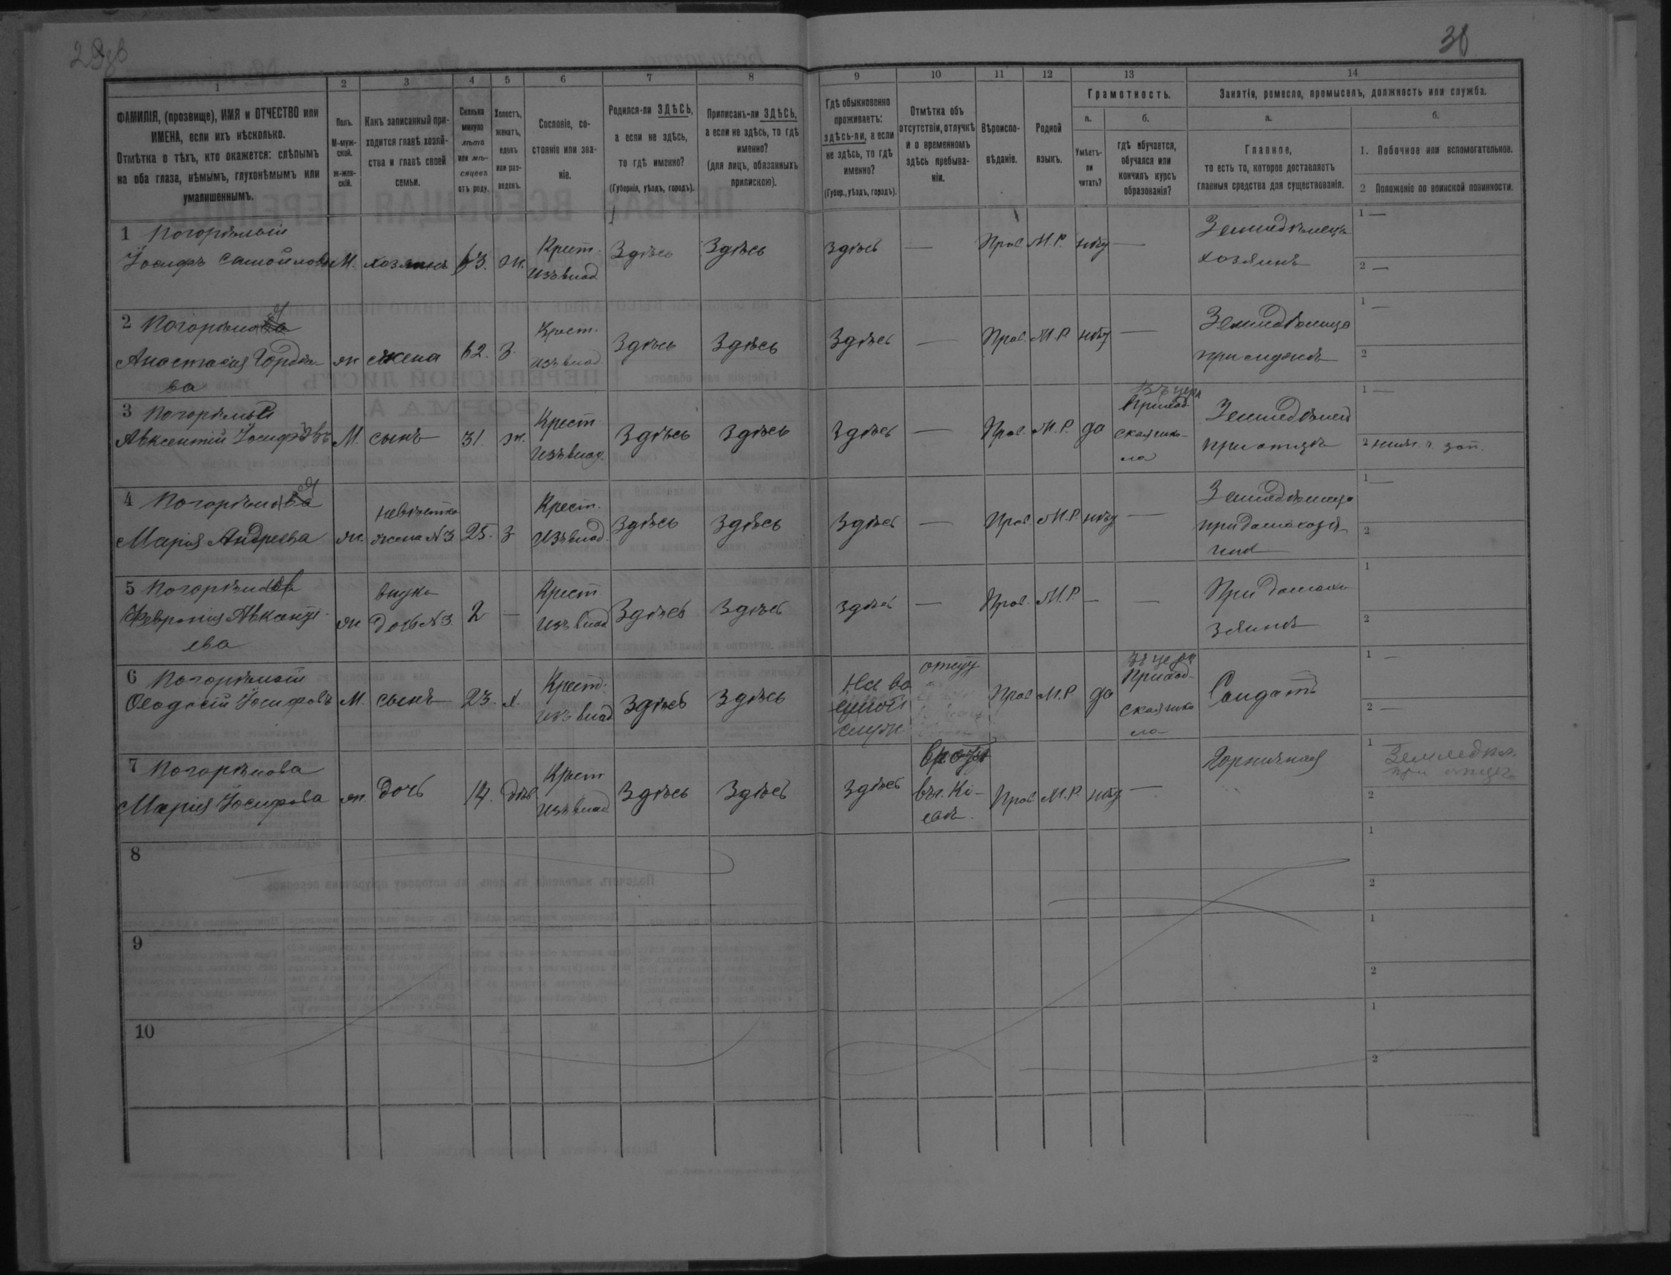 30
1
2
3
4
5
6
7
8
9
10
11
12
13
14
ФАМИЛІЯ, (прозвище), ИМЯ и ОТЧЕСТВО или
ИМЕНА, если ихъ нѣсколько.
Отмѣтка о тѣхъ, кто окажется: слѣпымъ
на оба глаза, нѣмымъ, глухонѣмымъ или
умалишеннымъ.
Полъ.
М-муж-
ской.
ж-жен-
скій.
Какъ записанный при-
ходится главѣ хозяй-
ства и главѣ своей
семьи.
Сколько
минуло
лѣтъ
или мѣ-
сяцевъ
отъ роду.
Холостъ,
женатъ,
вдовъ
или раз-
веденъ.
Сословіе, со-
стояніе или зва-
ніе.
Родился-ли ЗДѢСЬ,
а если не здѣсь,
то гдѣ именно?
(Губернія, уѣздъ, городъ).
Приписанъ-ли ЗДѢСЬ,
а если не здѣсь, то гдѣ
именно?
(для лицъ, обязанныхъ
припискою).
Гдѣ обыкновенно
проживаетъ:
здѣсь-ли, а если
не здѣсь, то гдѣ
именно?
(Губер., уѣздъ, городъ).
Отмѣтка объ
отсутствіи, отлучкѣ
и о временномъ
здѣсь пребыва-
ніи.
Вѣроиспо-
вѣданіе.
Родной
языкъ.
Грамотность.
а.
Умѣетъ-
ли
читать?
б.
гдѣ обучается,
обучался или
кончилъ курсъ
образованія?
Занятіе, ремесло, промыселъ, должность или служба.
а.
Главное,
то есть то, которое доставляетъ
главныя средства для существованія.
б.
1. Побочное или вспомогательное.
2 Положеніе по воинской повинности.
1 Погорѣлый
Іосифъ Самойловъ М. хозяинъ 63. ж. Крест. изъ влад. Здѣсь Здѣсь здѣсь — Прав. М.Р. нѣту — Земледѣлецъ
хозяинъ
1 —
2 —
2 Погорѣлова
Анастасія Гордѣе
ва
ж. жена 62. З. Крест. изъ влад. Здѣсь Здѣсь Здѣсь — Прав. М.Р. нѣту — Земледѣлица
при мужѣ
1 —
2
3 Погорѣлый
Авксентій Іосифовъ М. сынъ 31. ж. Крест изъ влад. Здѣсь Здѣсь Здѣсь — Прав. М.Р. да
Въ церк
Приход
ская шко-
ла
Земледѣлец
при отцѣ
1 —
2
4 Погорѣлова
Марія Андреева ж. невѣстка
жена №3 25. З Крест. изъ влад. Здѣсь Здѣсь Здѣсь — Прав. М.Р. нѣту — Земледѣлица
при домохозя
инѣ
1 —
2
5 Погорѣлова
Февронія Авксенті-
ева
ж. внука
дочь №3 2 — Крест изъ влад Здѣсь Здѣсь здѣсь — Прав. М.Р. — — При домохо
зяинѣ
1
2
6 Погорѣлый
Ѳеодосій Іосифовъ М. сынъ 23. х. Крест. изъ влад Здѣсь Здѣсь
На во
енной
службѣ
Прав М.Р. да
Въ церк
Приход-
ская шко
ла
Солдатъ
1 —
2 —
7 Погорѣлова
Марія Іосифова ж. дочь 14. дѣв. Крест изъ влад. Здѣсь Здѣсь здѣсь
Прав М.Р. нѣту — Горничная
1 Земледѣл.
при отцѣ
2
8
1
2
9
1
2
10
1
2